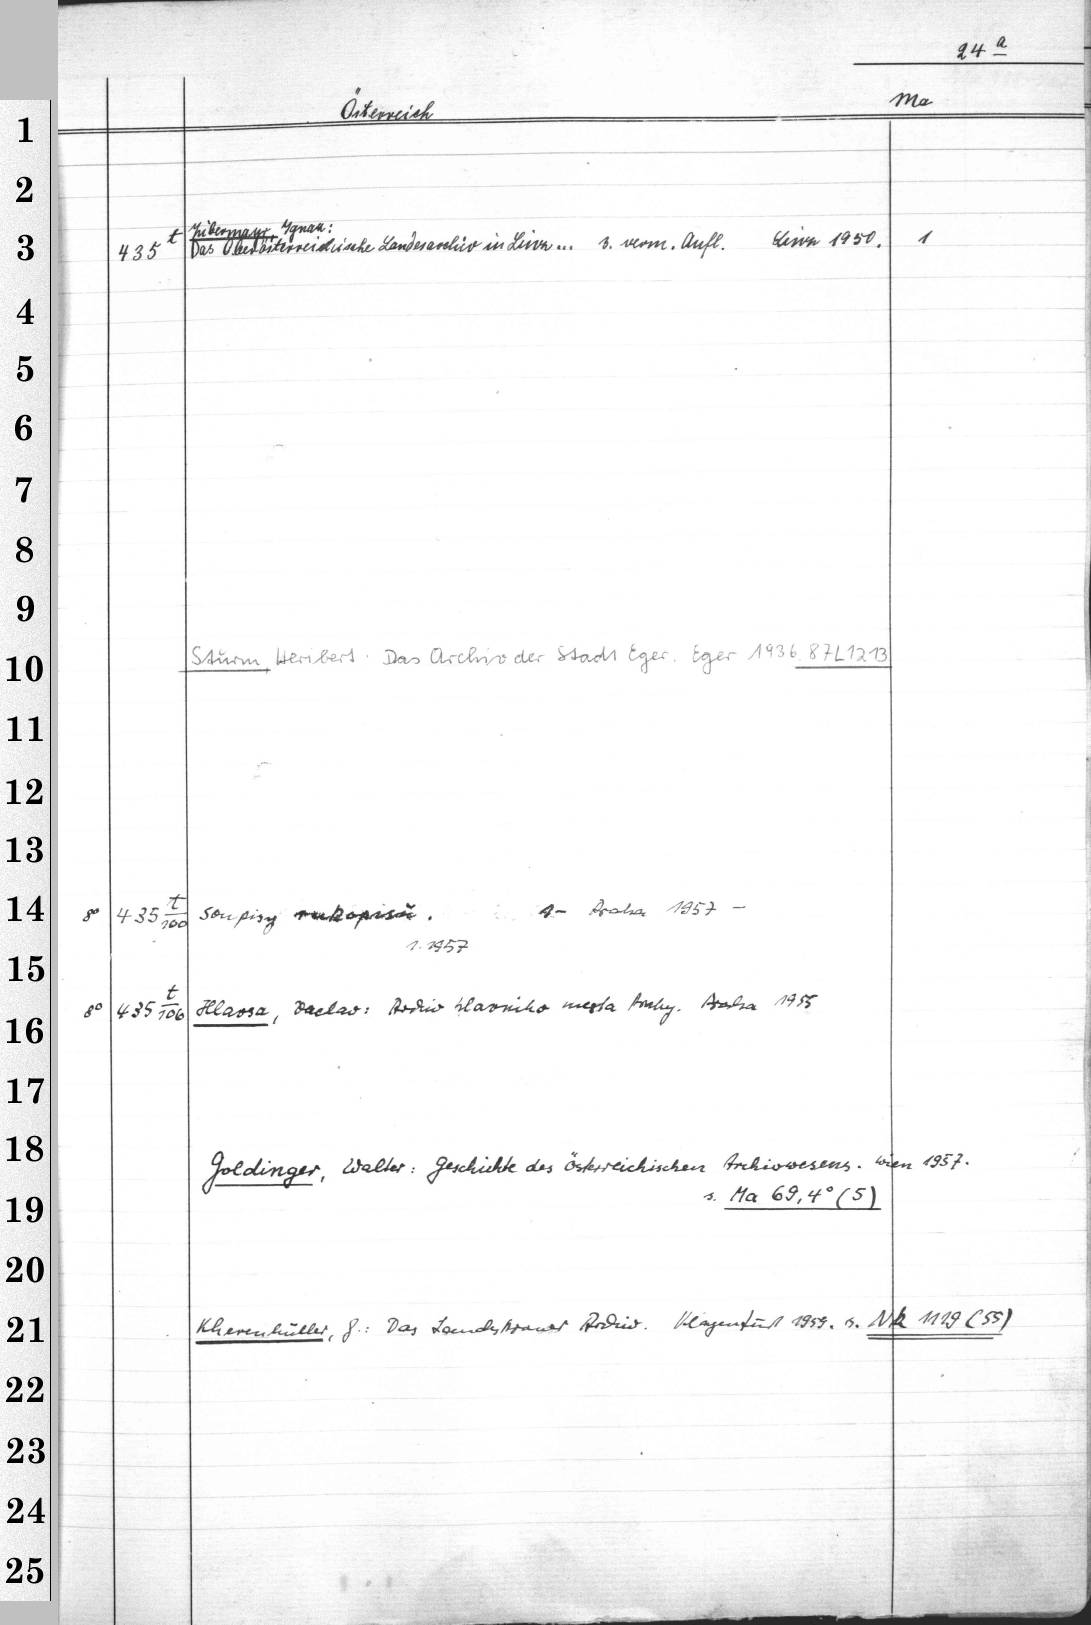 24 a
Österreich Ma
1
2
Zibermayr, Ignaz:
3 435 t Das Oberösterreichische Landesarchiv in Linz... 3. verm. Aufl. Linz 1950. 1
4
5
6
7
8
9
10 Sturm, Heribert. Das Archiv der Stadt Eger. Eger 1936. 87L1213
11
12
13
14 8° 435 t/100 Soupisy rukopisů. 1- Praha 1957 -
1. 1957
15
16 8° 435 t/106 Hlavsa, Vaclav: Archiv hlavniho mesta Prahy. Praha 1955
17
18 Goldinger, Walter: Geschichte des Österreichischen Archivwesens. Wien 1957.
19 s. Ma 69,4° (5)
20
21 Khevenhüller, G.: Das Landskroner Archiv. Klagenfurt 1959. s. Nk 1119 (55)
22
23
24
25